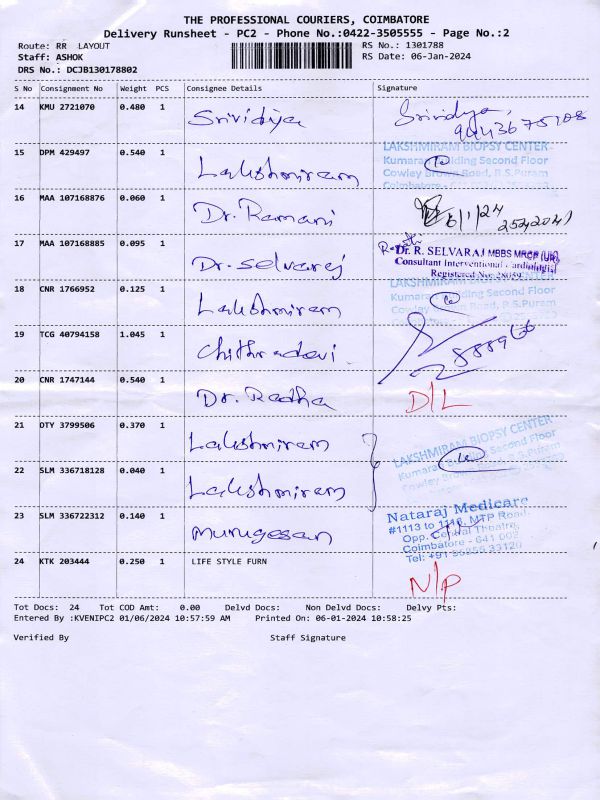 THE PROFESSIONAL COURIERS, COIMBATORE
Delivery Runsheet - PC2 - Phone No.:0422-3505555 - Page No.:2
Route: RR LAYOUT
RS No.: 1301788
Staff: ASHOK
RS Date: 06-Jan-2024
DRS No.: DCJB130178802
S No Consignment No Weight PCS Consignee Details Signature
14 KMU 2721070 0.480 1 Srividiya Srividya,
15 DPM 429497 0.540 1 Lakshmiram
LAKSHMIRAM BIOPSY CENTER
Second Floor
Cowley Brown Road, R.S.Puram
16 MAA 107168876 0.060 1 Dr. Ramani 6/1/24
17 MAA 107168885 0.095 1 Dr. Selvaraj
Dr. R. SELVARAJ MBBS MRCP (UK)
Consultant Interventional Cardiologist
18 CNR 1766952 0.125 1 Lakshmiram
LAKSHMIRAM BIOPSY CENTER
Second Floor
19 TCG 40794158 1.045 1 Chithradevi
20 CNR 1747144 0.540 1 Dr. Radha D/L
21 DTY 3799506 0.370 1 Lakshmiram
LAKSHMIRAM BIOPSY CENTER
Second Floor
22 SLM 336718128 0.040 1 Lakshmiram
23 SLM 336722312 0.140 1 Murugesan
Nataraj Medicare
#1113 to 1116, MTP Road,
Opp. Central Theatre,
Coimbatore - 641 002
Tel: +91 95855 33120
24 KTK 203444 0.250 1 LIFE STYLE FURN N/P
Tot Docs: 24 Tot COD Amt: 0.00 Delvd Docs: Non Delvd Docs: Delvy Pts:
Entered By :KVENIPC2 01/06/2024 10:57:59 AM Printed On: 06-01-2024 10:58:25
Verified By Staff Signature